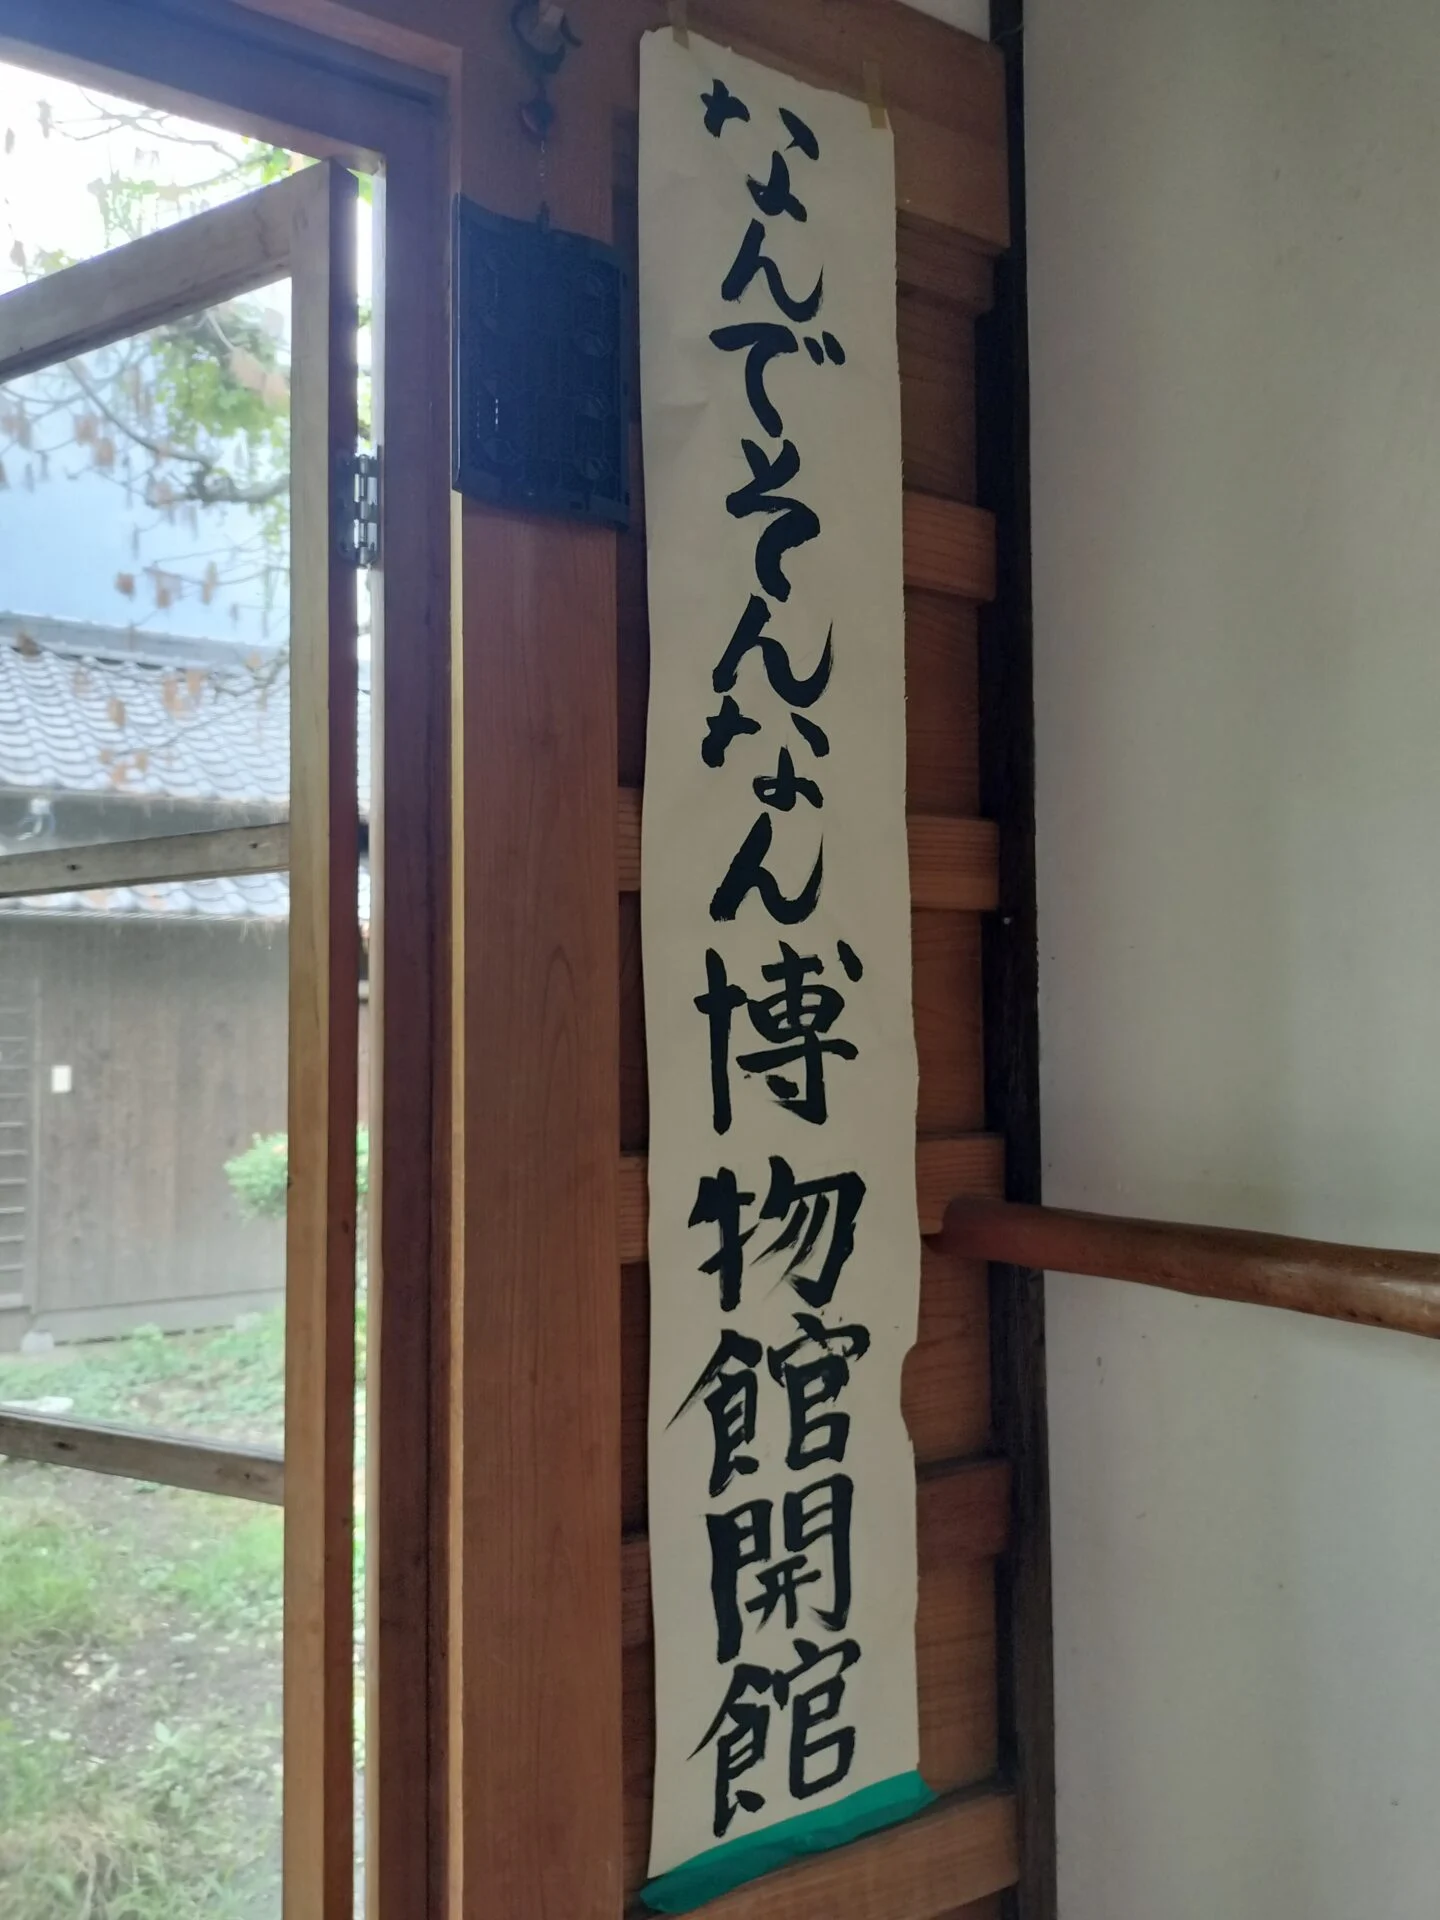 なんでそんなん博物館開館